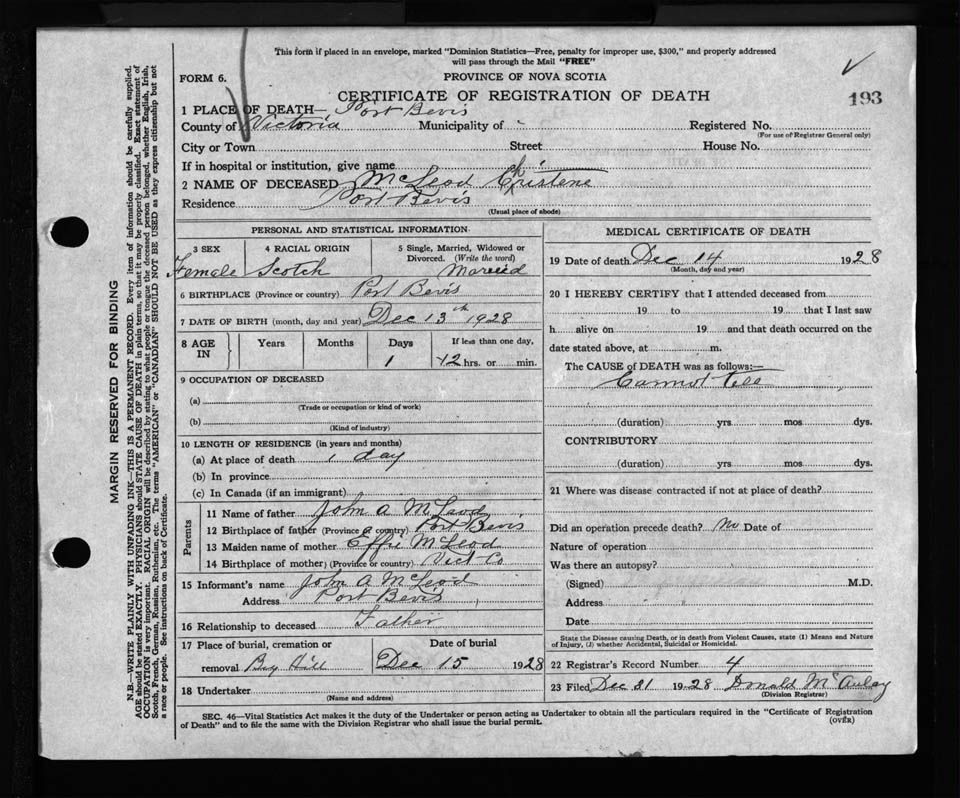 This form if placed in an envelope, marked "Dominion Statistics—Free, penalty for improper use, $300," and properly addressed
will pass through the Mail "FREE"
FORM 6.
PROVINCE OF NOVA SCOTIA
CERTIFICATE OF REGISTRATION OF DEATH
193
1 PLACE OF DEATH— Port Bevis
County of Victoria Municipality of - Registered No.
(For use of Registrar General only)
City or Town Street House No.
If in hospital or institution, give name
2 NAME OF DECEASED McLeod Christene
Residence Port Bevis
(Usual place of abode)
PERSONAL AND STATISTICAL INFORMATION
3 SEX 4 RACIAL ORIGIN 5 Single, Married, Widowed or
Divorced. (Write the word)
Female Scotch Married
6 BIRTHPLACE (Province or country) Port Bevis
7 DATE OF BIRTH (month, day and year) Dec 13th 1928
8 AGE IN Years Months Days If less than one day,
1 12 hrs. or min.
9 OCCUPATION OF DECEASED
(a)
(Trade or occupation or kind of work)
(b)
(Kind of industry)
10 LENGTH OF RESIDENCE (in years and months)
(a) At place of death 1 day
(b) In province
(c) In Canada (if an immigrant)
Parents
11 Name of father John A McLeod
12 Birthplace of father (Province or country) Port Bevis
13 Maiden name of mother Effie McLeod
14 Birthplace of mother) (Province or country) Vict Co
15 Informant's name John A McLeod
Address Port Bevis
16 Relationship to deceased Father
17 Place of burial, cremation or Date of burial
removal Big Hill Dec 15 1928
18 Undertaker
(Name and address)
MEDICAL CERTIFICATE OF DEATH
19 Date of death Dec 14 1928
(Month, day and year)
20 I HEREBY CERTIFY that I attended deceased from
19 to 19 that I last saw
h alive on 19 and that death occurred on the
date stated above, at m.
The CAUSE of DEATH was as follows:—
Cannot tell
(duration) yrs mos dys.
CONTRIBUTORY
(duration) yrs mos dys.
21 Where was disease contracted if not at place of death?
Did an operation precede death? No Date of
Nature of operation
Was there an autopsy?
(Signed) M.D.
Address
Date
State the Disease causing Death, or in death from Violent Causes, state (1) Means and Nature
of Injury, (2) whether Accidental, Suicidal or Homicidal.
22 Registrar's Record Number 4
23 Filed Dec 31 1928 Donald McAulay
(Division Registrar)
SEC. 46—Vital Statistics Act makes it the duty of the Undertaker or person acting as Undertaker to obtain all the particulars required in the "Certificate of Registration
of Death" and to file the same with the Division Registrar who shall issue the burial permit.
(OVER)
MARGIN RESERVED FOR BINDING
N.B.—WRITE PLAINLY WITH UNFADING INK—THIS IS A PERMANENT RECORD. Every item of information should be carefully supplied.
AGE should be stated EXACTLY. PHYSICIANS should STATE CAUSE OF DEATH in plain terms, so that it may be properly classified. Exact statement of
OCCUPATION is very important. RACIAL ORIGIN will be described by stating to what people or tongue the deceased person belonged, whether English, Irish,
Scotch, French, German, Russian, Ruthenian, etc. The terms "AMERICAN" or "CANADIAN" SHOULD NOT BE USED as they express citizenship but not
a race or people. See instructions on back of Certificate.